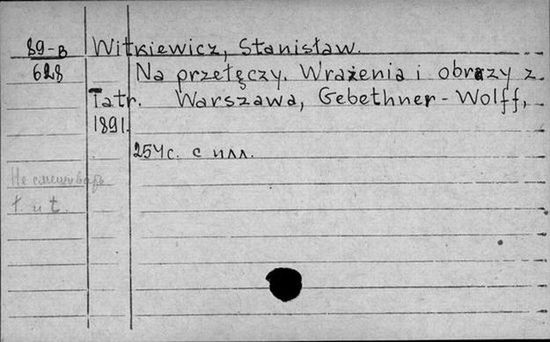 89-в Witkiewicz, Stanisław.
628 Na przełęczy. Wrażenia i obrazy z
Tatr. Warszawa, Gebethner-Wolff,
1891.
254с. с илл.
Не смешивать
ł и t.